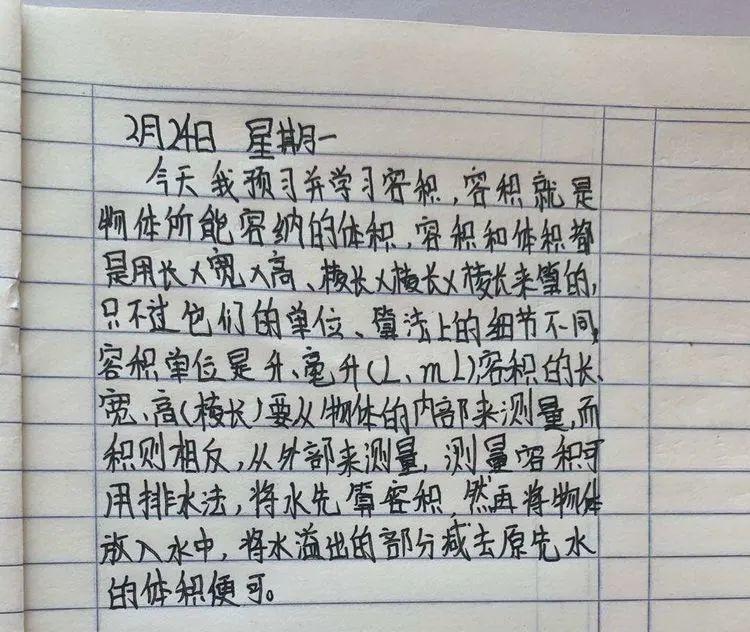 2月24日 星期一
今天我预习并学习容积,容积就是
物体所能容纳的体积,容积和体积都
是用长×宽×高、棱长×棱长×棱长来算的,
只不过他们的单位、算法上的细节不同,
容积单位是升、毫升(L、mL)容积的长、
宽、高(棱长)要从物体的内部来测量,而
积则相反,从外部来测量,测量容积可
用排水法,将水先算容积,然再将物体
放入水中,将水溢出的部分减去原先水
的体积便可。